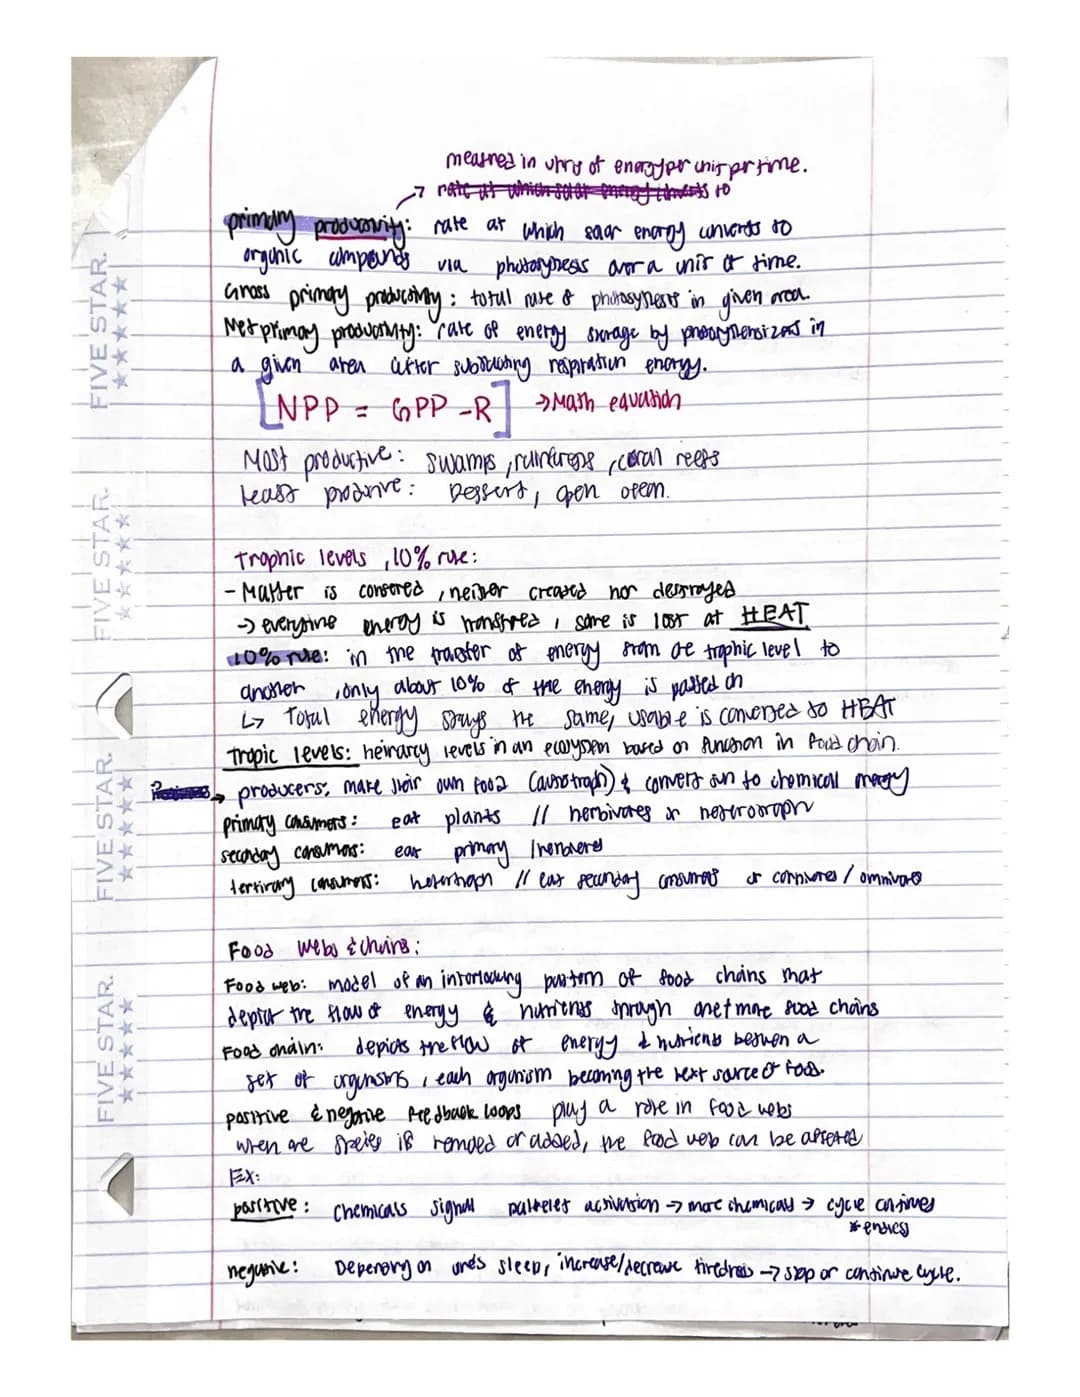 measured in units of energy per unit per time.
rate at which solar energy converts to
primary productivity: rate at which solar energy converts to
organic compounds via photosynthesis over a unit of time.
Gross primary productivity: total rate of photosynthesis in given area.
Net primary productivity: rate of energy storage by photosynthesizers in
a given area after subtracting respiration energy.
[NPP = GPP -R] →Math equation
Most productive: swamps, rainforests, coral reefs
Least productive: Dessert, open ocean.
Trophic levels, 10% rule:
- Matter is conserved, neither created nor destroyed
→ everytime energy is transfred, some is lost at HEAT
10% rule: in the transfer of energy from one trophic level to
another, only about 10% of the energy is passed on
↳ Total energy stays the same, usable is converted to HEAT
Tropic levels: heirarcy levels in an ecosystem based on function in food chain.
→ producers: make their own food (autotroph) & convert sun to chemical energy
primary consumers: eat plants // herbivores or heterotroph
seconday consumers: eat primary / herbivores
tertirary consumers: heterotroph // eat secondary consumers or carnivores / omnivores
Food webs & chains:
Food web: model of an interlocking pattern of food chains that
depict the flow of energy & nutrients through one + more food chains
Food chain: depicts the flow of energy & nutrients between a
set of organisms, each organism becoming the next source of food.
positive & negative feedback loops play a role in food webs
when one species is removed or added, the food web can be affected
Ex:
positive: chemicals signal platelet activation → more chemicals → cycle continues
*endless
negative: Depending on one's sleep, increase/decrease tiredness → stop or continue cycle.
FIVE STAR.
FIVE STAR.
FIVE STAR.
FIVE STAR.